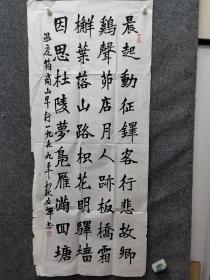 晨起動征鐸客行悲故鄉
鷄聲茆店月人跡板橋霜
槲葉落山路枳花明驛墻
因思杜陵夢鳧雁滿回塘
温庭筠商山早行一九九九年初秋